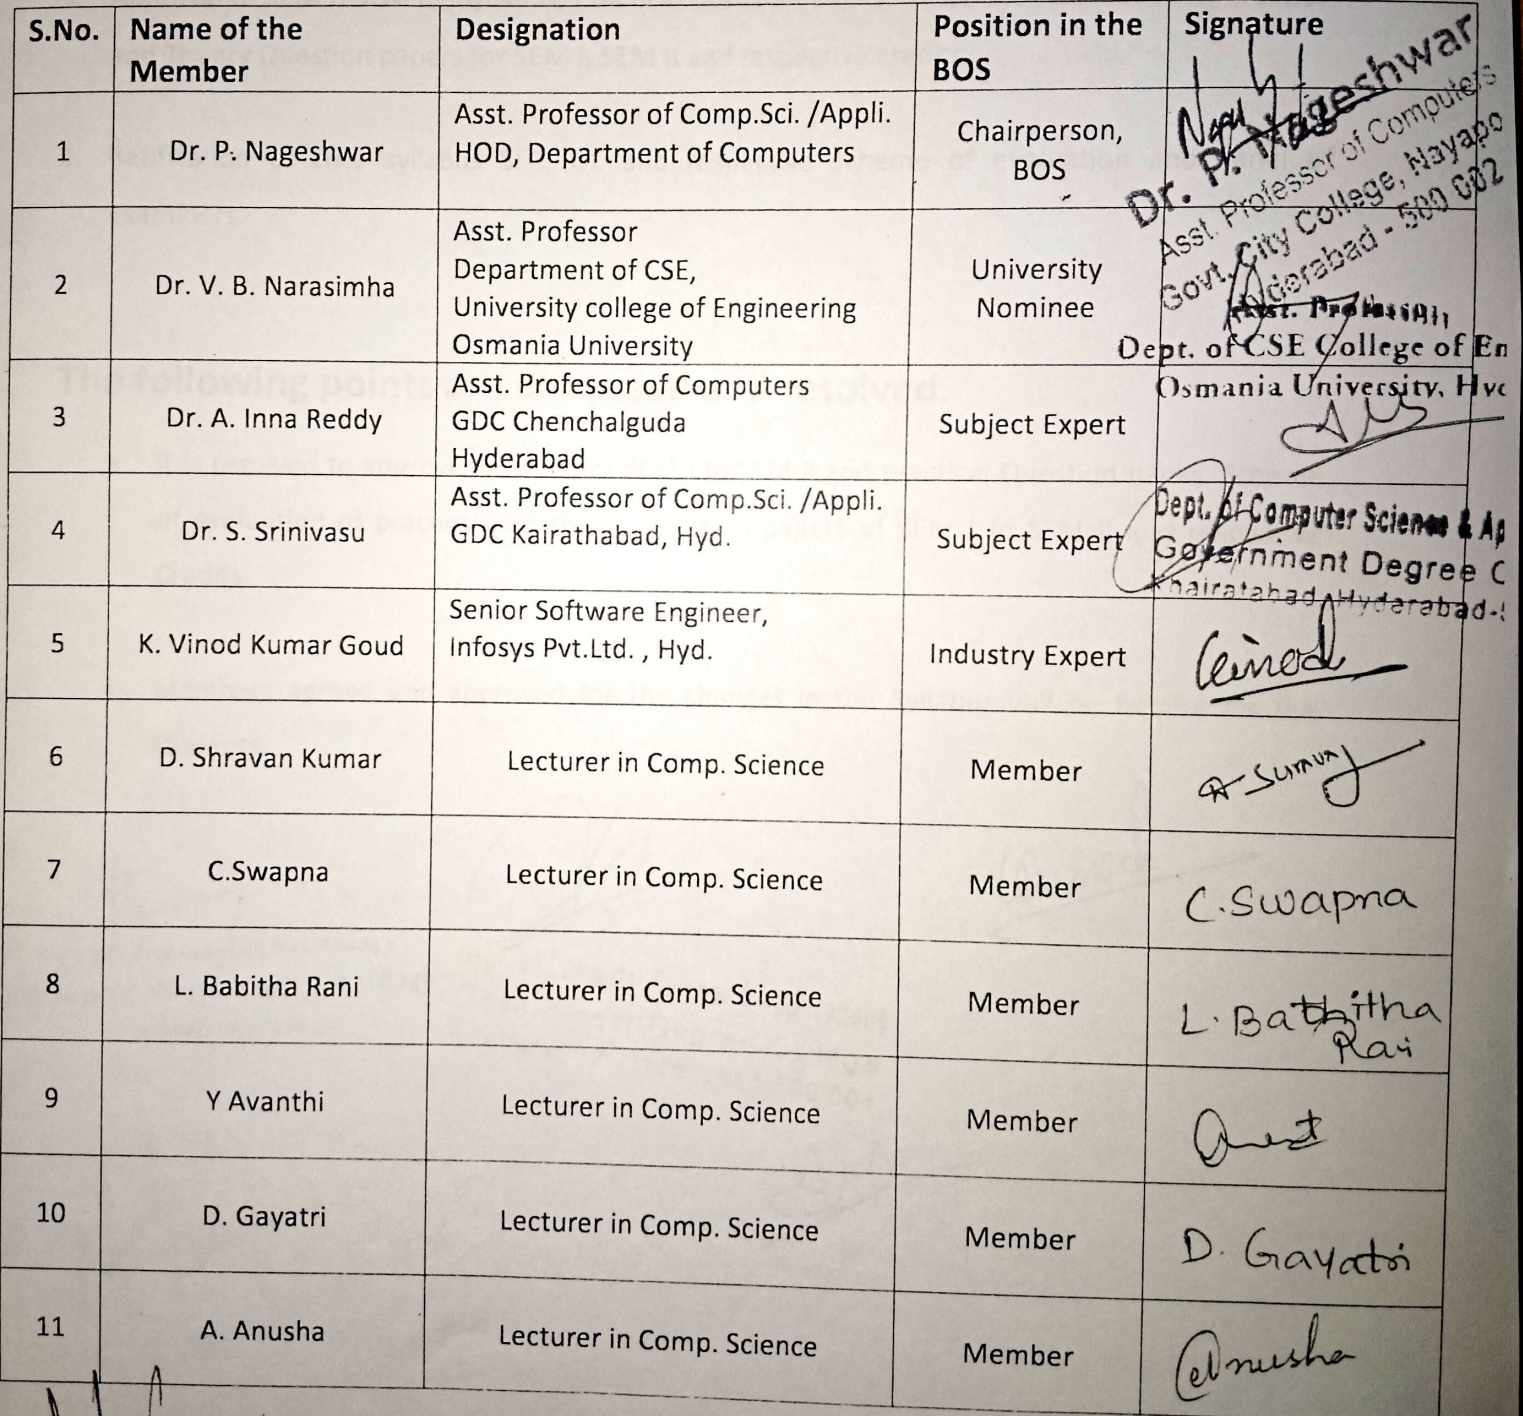 S.No. Name of the Member Designation Position in the BOS Signature
1 Dr. P. Nageshwar Asst. Professor of Comp.Sci. /Appli.
HOD, Department of Computers
Chairperson,
BOS
Dr. P. Nageshwar
Asst. Professor of Computers
Govt. City College, Nayapo
Hyderabad - 500 002
2 Dr. V. B. Narasimha Asst. Professor
Department of CSE,
University college of Engineering
Osmania University
University
Nominee
Asst. Professor,
Dept. of CSE College of En
Osmania University, Hyd
3 Dr. A. Inna Reddy Asst. Professor of Computers
GDC Chenchalguda
Hyderabad
Subject Expert
4 Dr. S. Srinivasu Asst. Professor of Comp.Sci. /Appli.
GDC Kairathabad, Hyd.
Subject Expert
Dept. of Computer Science & Ap
Government Degree C
Khairatabad, Hyderabad-
5 K. Vinod Kumar Goud Senior Software Engineer,
Infosys Pvt.Ltd. , Hyd.
Industry Expert
Vinod
6 D. Shravan Kumar Lecturer in Comp. Science Member
7 C.Swapna Lecturer in Comp. Science Member C.Swapna
8 L. Babitha Rani Lecturer in Comp. Science Member L. Babitha
Rani
9 Y Avanthi Lecturer in Comp. Science Member
10 D. Gayatri Lecturer in Comp. Science Member D. Gayatri
11 A. Anusha Lecturer in Comp. Science Member Anusha